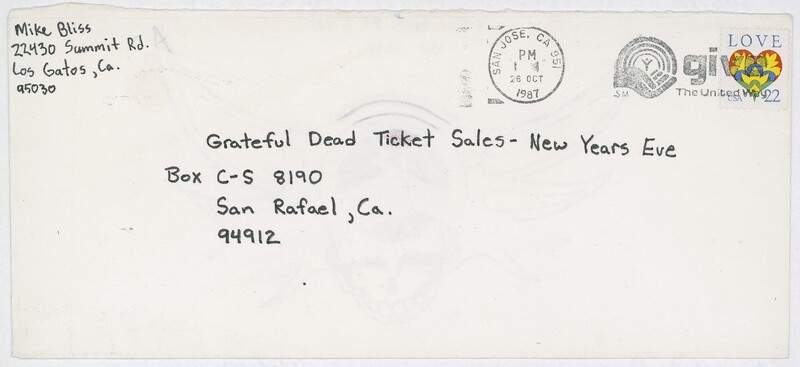 Mike Bliss
22430 Summit Rd.
Los Gatos, Ca.
95030
SAN JOSE, CA 951
PM
26 OCT
1987
SM
giv
The United Way
LOVE
USA 22
Grateful Dead Ticket Sales - New Years Eve
Box C-S 8190
San Rafael, Ca.
94912